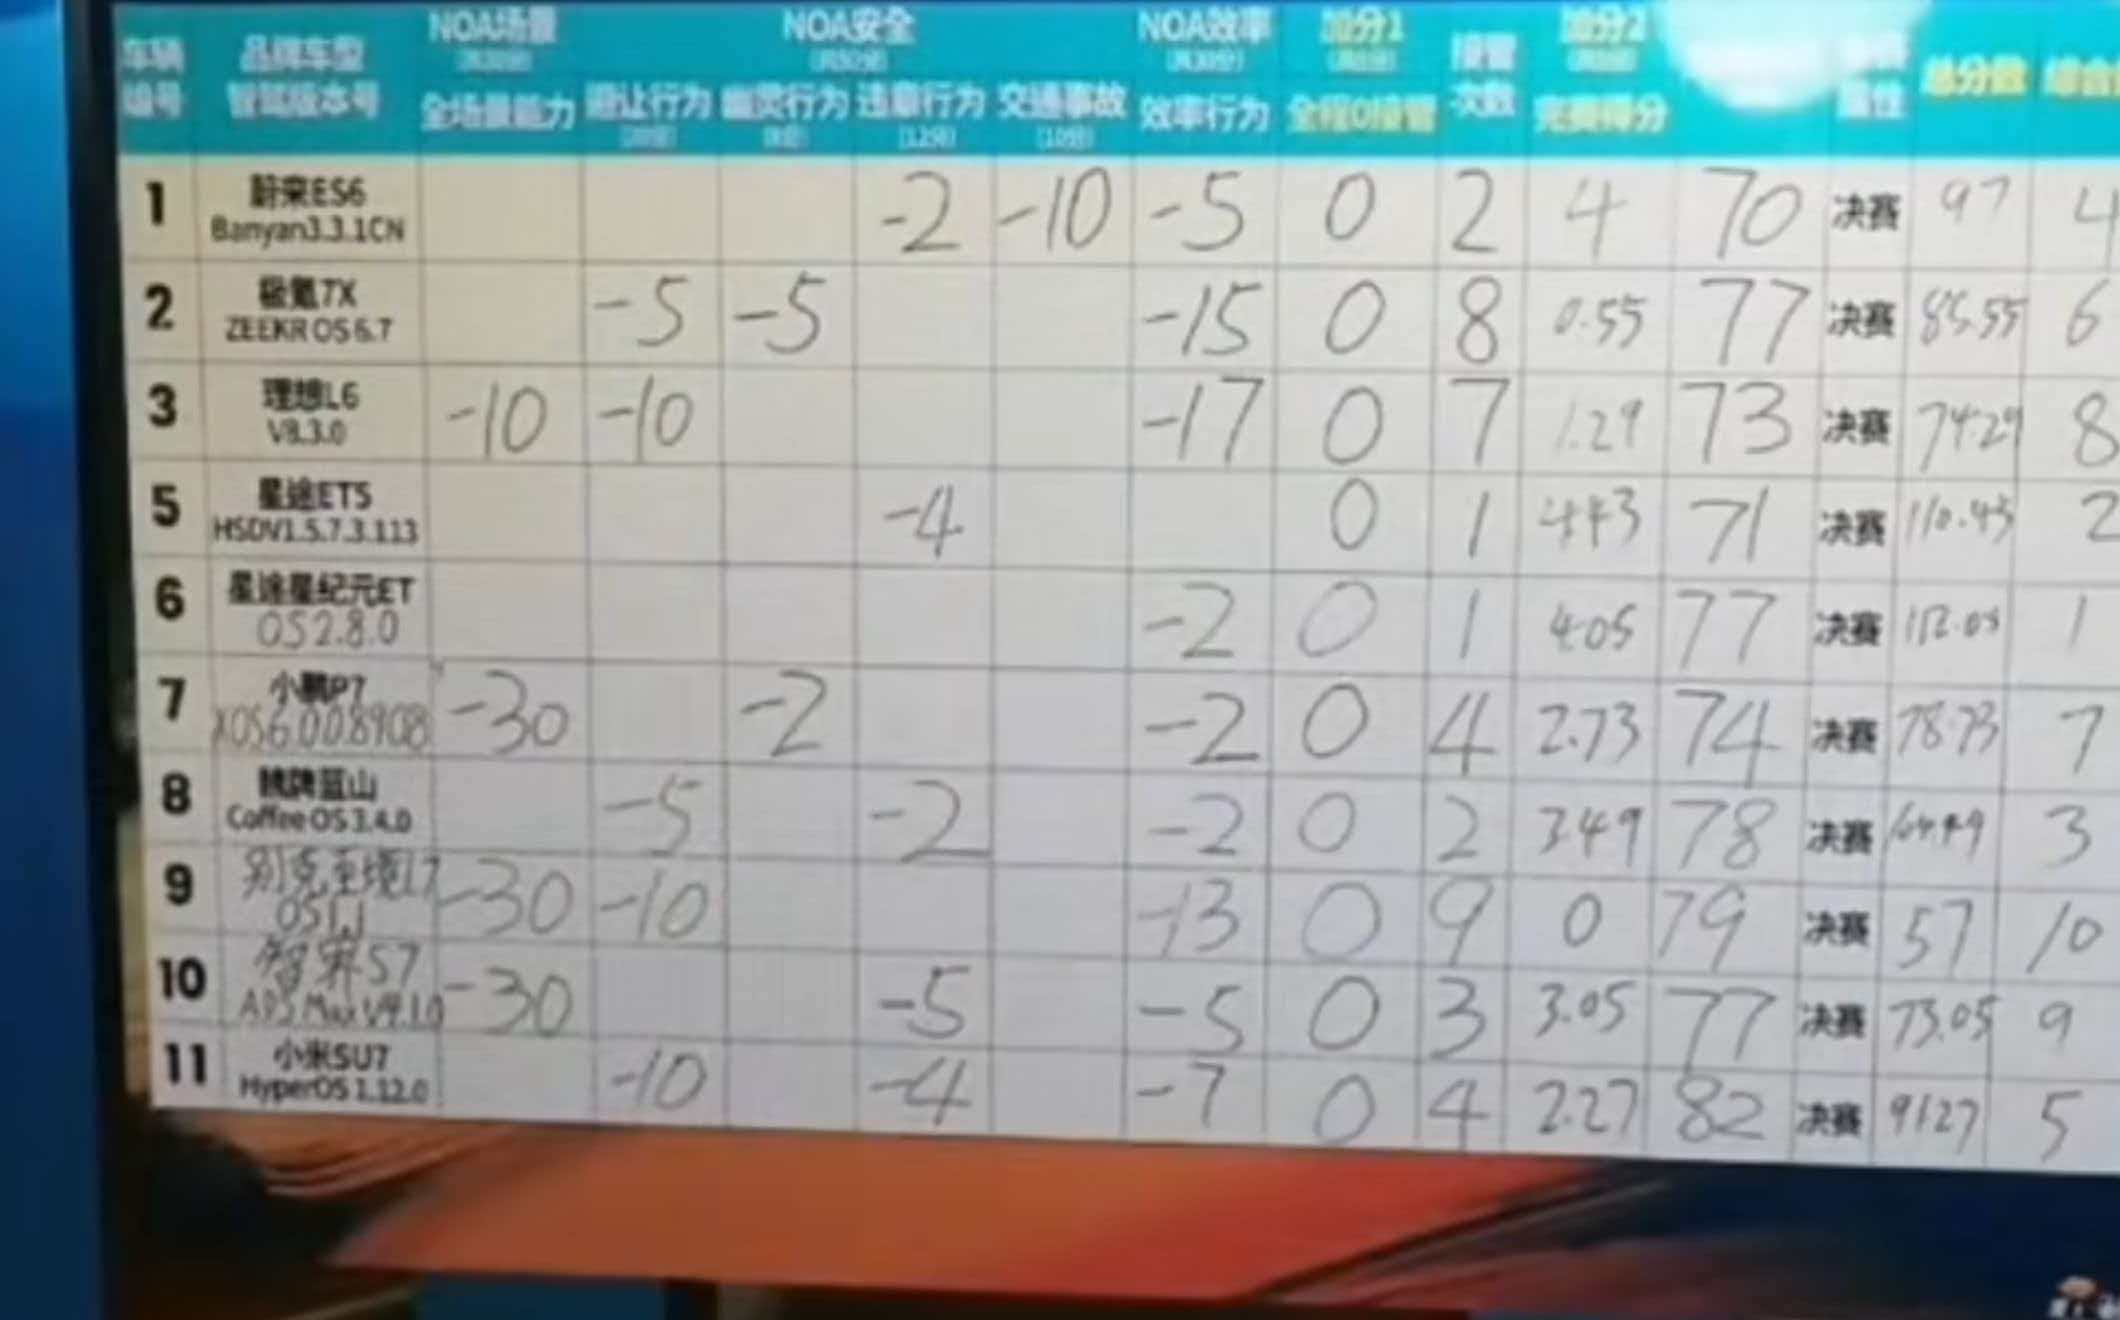 车辆
编号
品牌车型
智驾版本号
NOA场景
(共30分)
全场景能力
NOA安全
(共50分)
避让行为
(20分)
幽灵行为
(8分)
违章行为
(12分)
交通事故
(10分)
NOA效率
(共30分)
效率行为
加分1
全程0接管
接管
次数
加分2
完赛得分
属性
总分数
综合
1 蔚来ES6 -2 -10 -5 0 2 4 70 决赛 97 4
Banyan3.3.1CN
2 极氪7X -5 -5 -15 0 8 0.55 77 决赛 85.55 6
ZEEKR OS 6.7
3 理想L6 -10 -10 -17 0 7 1.29 73 决赛 74.29 8
V8.3.0
5 星途ET5 -4 0 1 4.43 71 决赛 110.43 2
HSDV1.5.7.3.113
6 星途星纪元ET -2 0 1 4.05 77 决赛 112.05 1
OS2.8.0
7 小鹏P7 -30 -2 -2 0 4 2.73 74 决赛 78.73 7
XOS6.0.0.8908
8 魏牌蓝山 -5 -2 -2 0 2 3.49 78 决赛 104.49 3
Coffee OS 3.4.0
9 别克至境L7 -30 -10 -13 0 9 0 79 决赛 57 10
OS1.1
10 智界S7 -30 -5 -5 0 3 3.05 77 决赛 73.05 9
ADS Max V4.1.0
11 小米SU7 -10 -4 -7 0 4 2.27 82 决赛 91.27 5
HyperOS 1.12.0